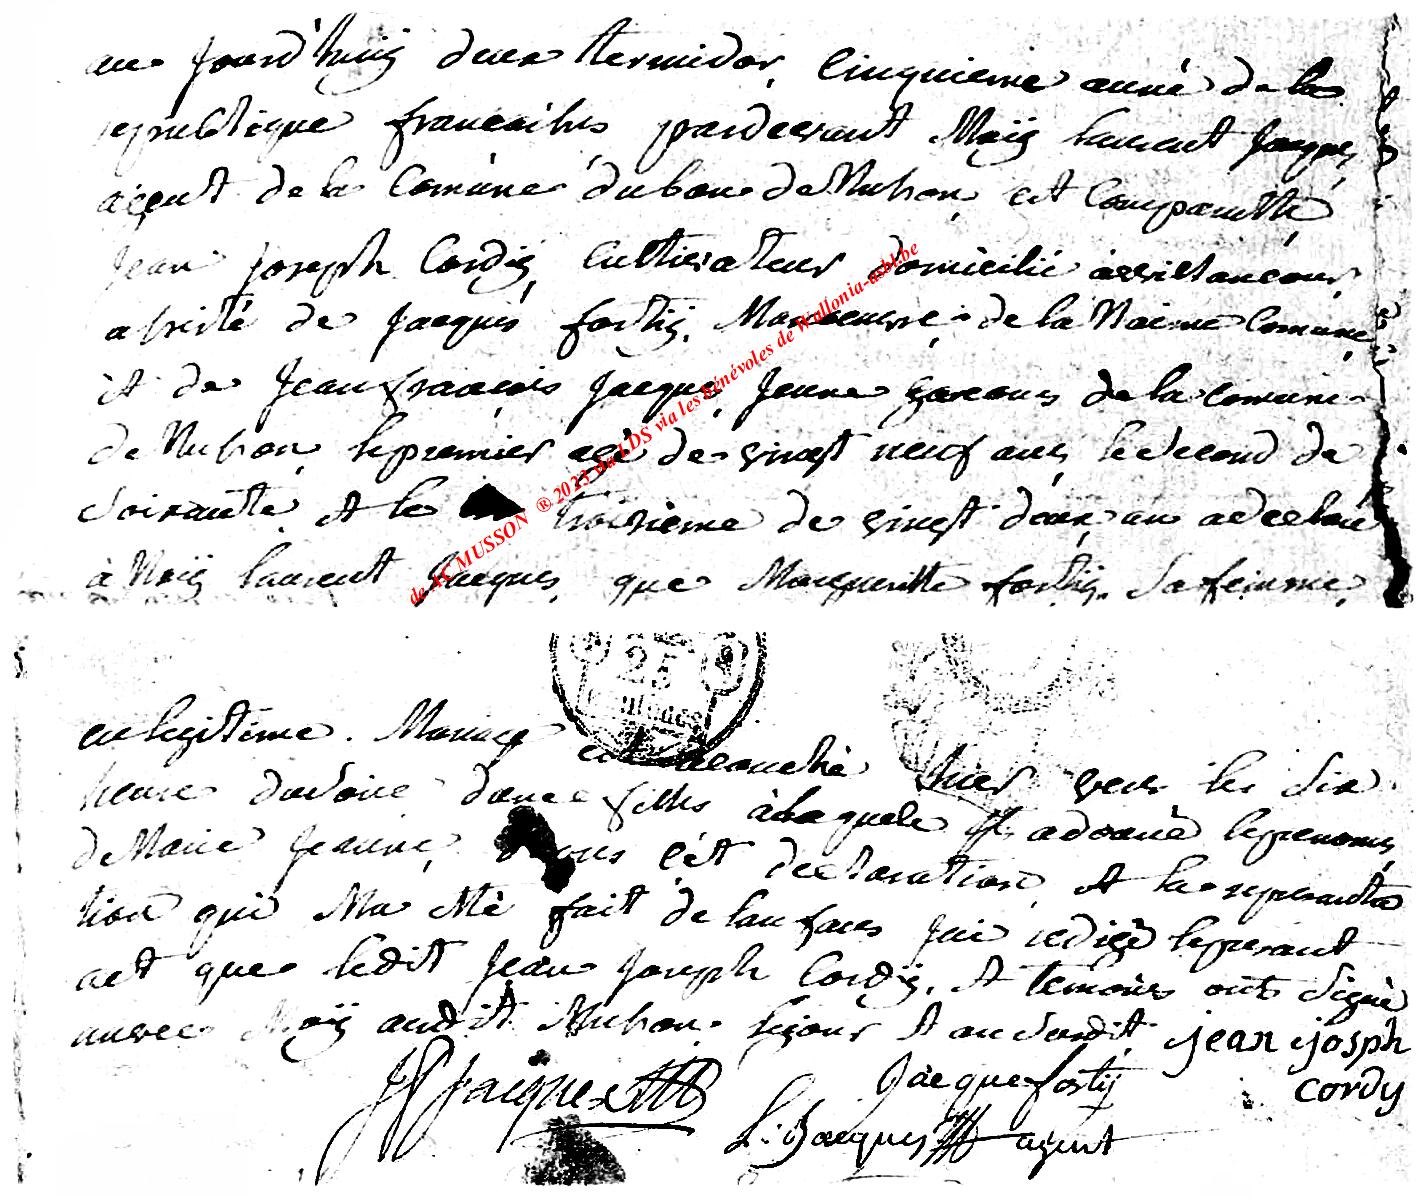 au Jourd'huij deux termidor, Cinquieme année de la
republique francaises pardevant Moÿ laurent Jacques,
agent de la Comune du ban de Musson est Comparuttë
Jean Joseph Cordÿ, Cultivateur domicilié à Willancour,
assisté de Jacques fortÿ, Manoeuvre de la Maeme Comune,
et de Jean francois Jacque, Jeune garcons de la Comune
de Musson, le premier agé de vingt neuf ans, le second de
Soixante et le troisieme de vingt deux an a declaré
à Moÿ laurent Jacques, que Margueritte fortÿ, Sa femme,
en legitime Mariage est accouchée hier vers les Six
heure du Soire d'une filles à la quele il a donnè le prenoms
de Marie Jeanne, d'apres cet declaration et la representa
tion qui Ma été fait de l'enfans Jai redigè le present
act que ledit Jean Joseph Cordÿ, et temoins ont Signè
auvec Moÿ audit Musson le jour et an Susdit jean josph
cordy
Jf Jacques
Jacque fortij
L: Jacques agent
25
Centimes
de AC MUSSON ® 2023 via LDS via les bénévoles de Wallonia-asbl.be